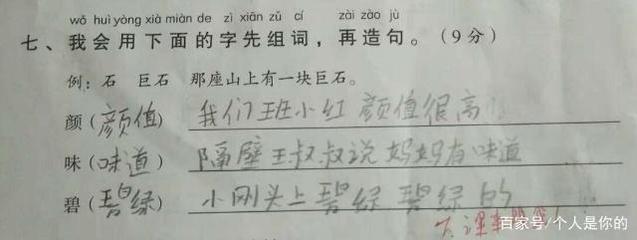 wǒ huì yòng xià miàn de zì xiān zǔ cí zài zào jù
七、我会用下面的字先组词，再造句。（9分）
例：石 巨石 那座山上有一块巨石。
颜（颜值）我们班小红颜值很高
味（味道）隔壁王叔叔说妈妈有味道
碧（碧绿）小刚头上碧绿碧绿的
下课
百家号/个人是你的